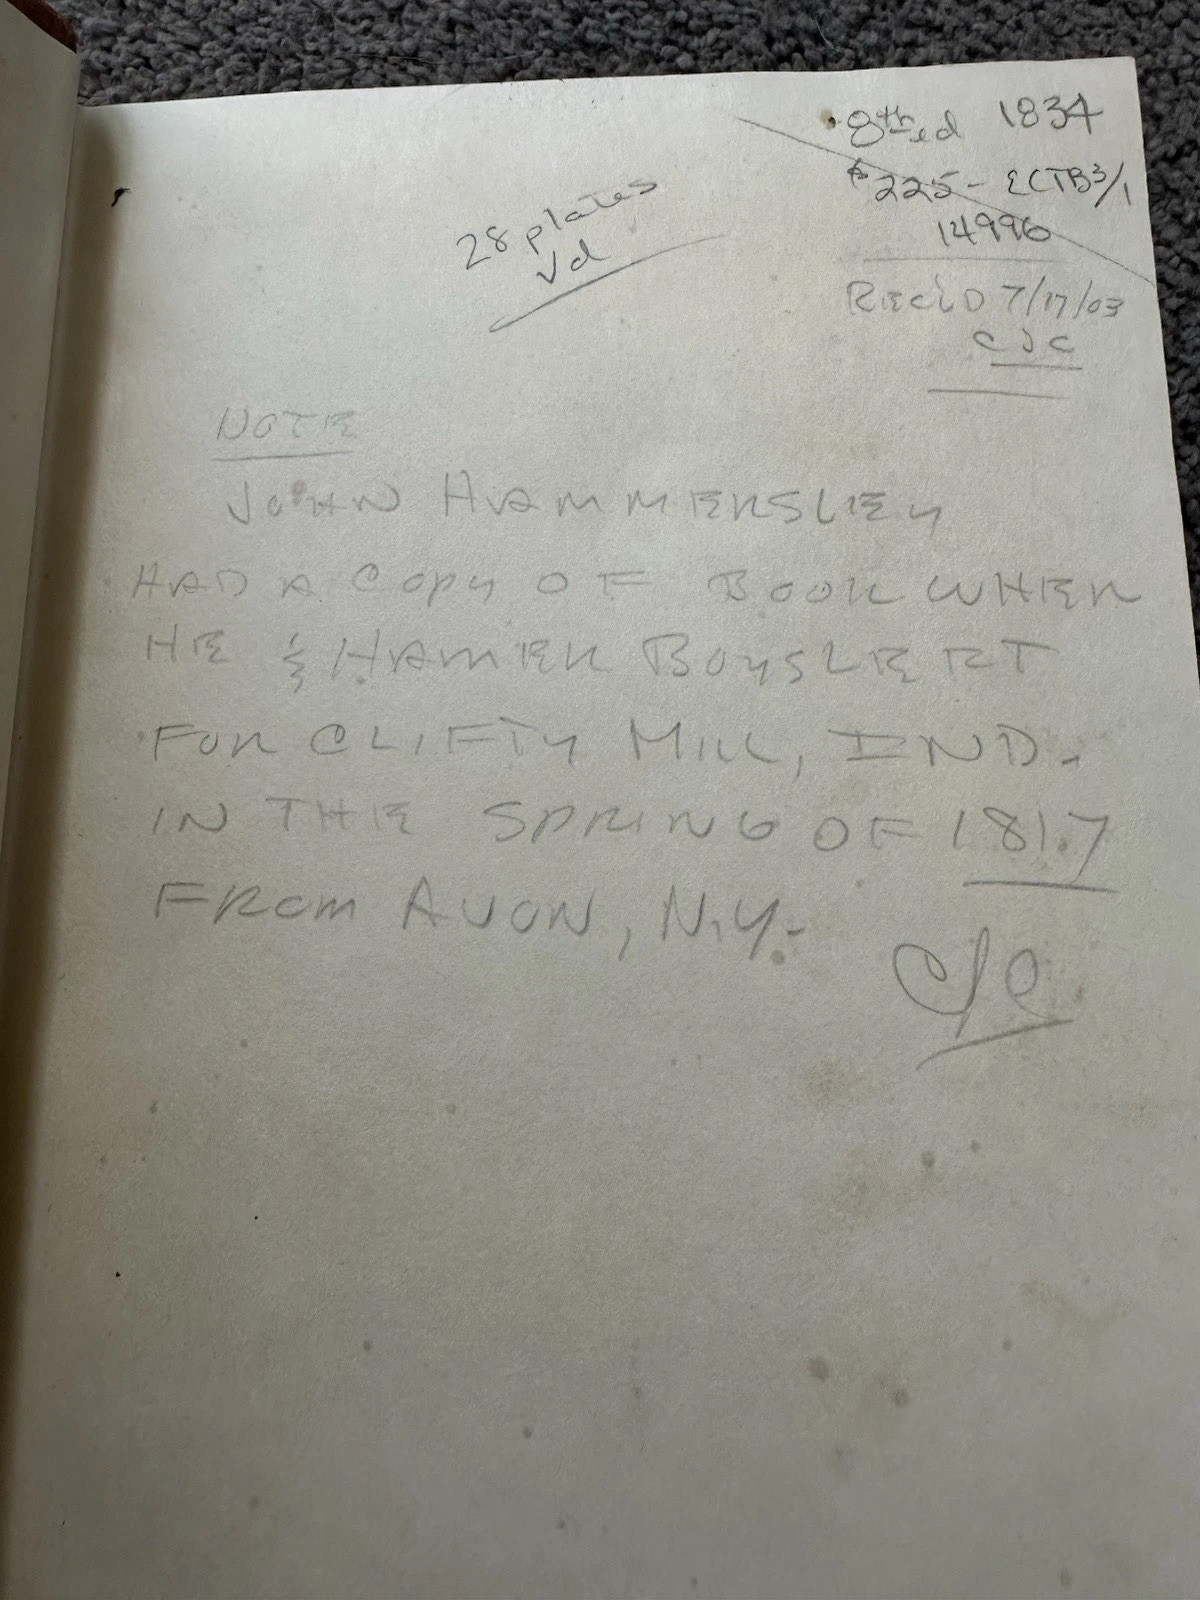 8th ed 1834
$225- ECTB3/1
14996
28 plates
√d
REC'D 7/17/03
CJC
NOTE
JOHN HAMMERSLEY
HAD A COPY OF BOOK WHEN
HE & HAMER BOYS LEFT
FOR CLIFTY MILL, IND.
IN THE SPRING OF 1817
FROM AVON, N.Y.
CJC